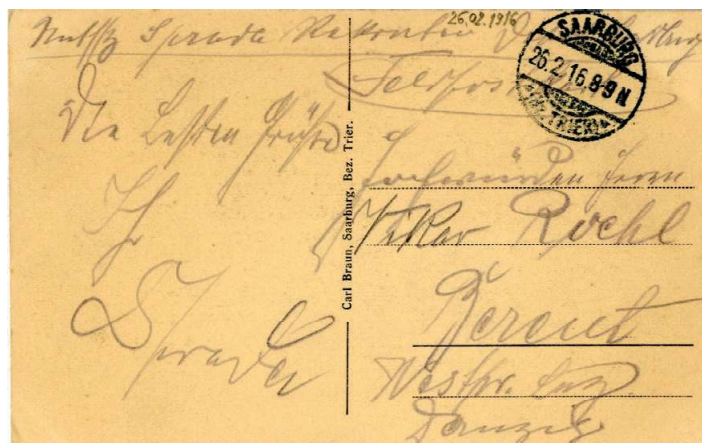 26.02.1916
Sprada
SAARBURG
26.2.16.8-9N.
(BZ. TRIER)
Feldpost
Die besten Grüße
Ihr
Sprada
Carl Braun, Saarburg, Bez. Trier.
Hochwürden Herrn
Vikar Rochl
Berent
Westpr. Bez.
Danzig